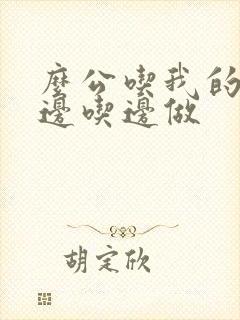 麼公喫我的
邊喫邊做
胡定欣